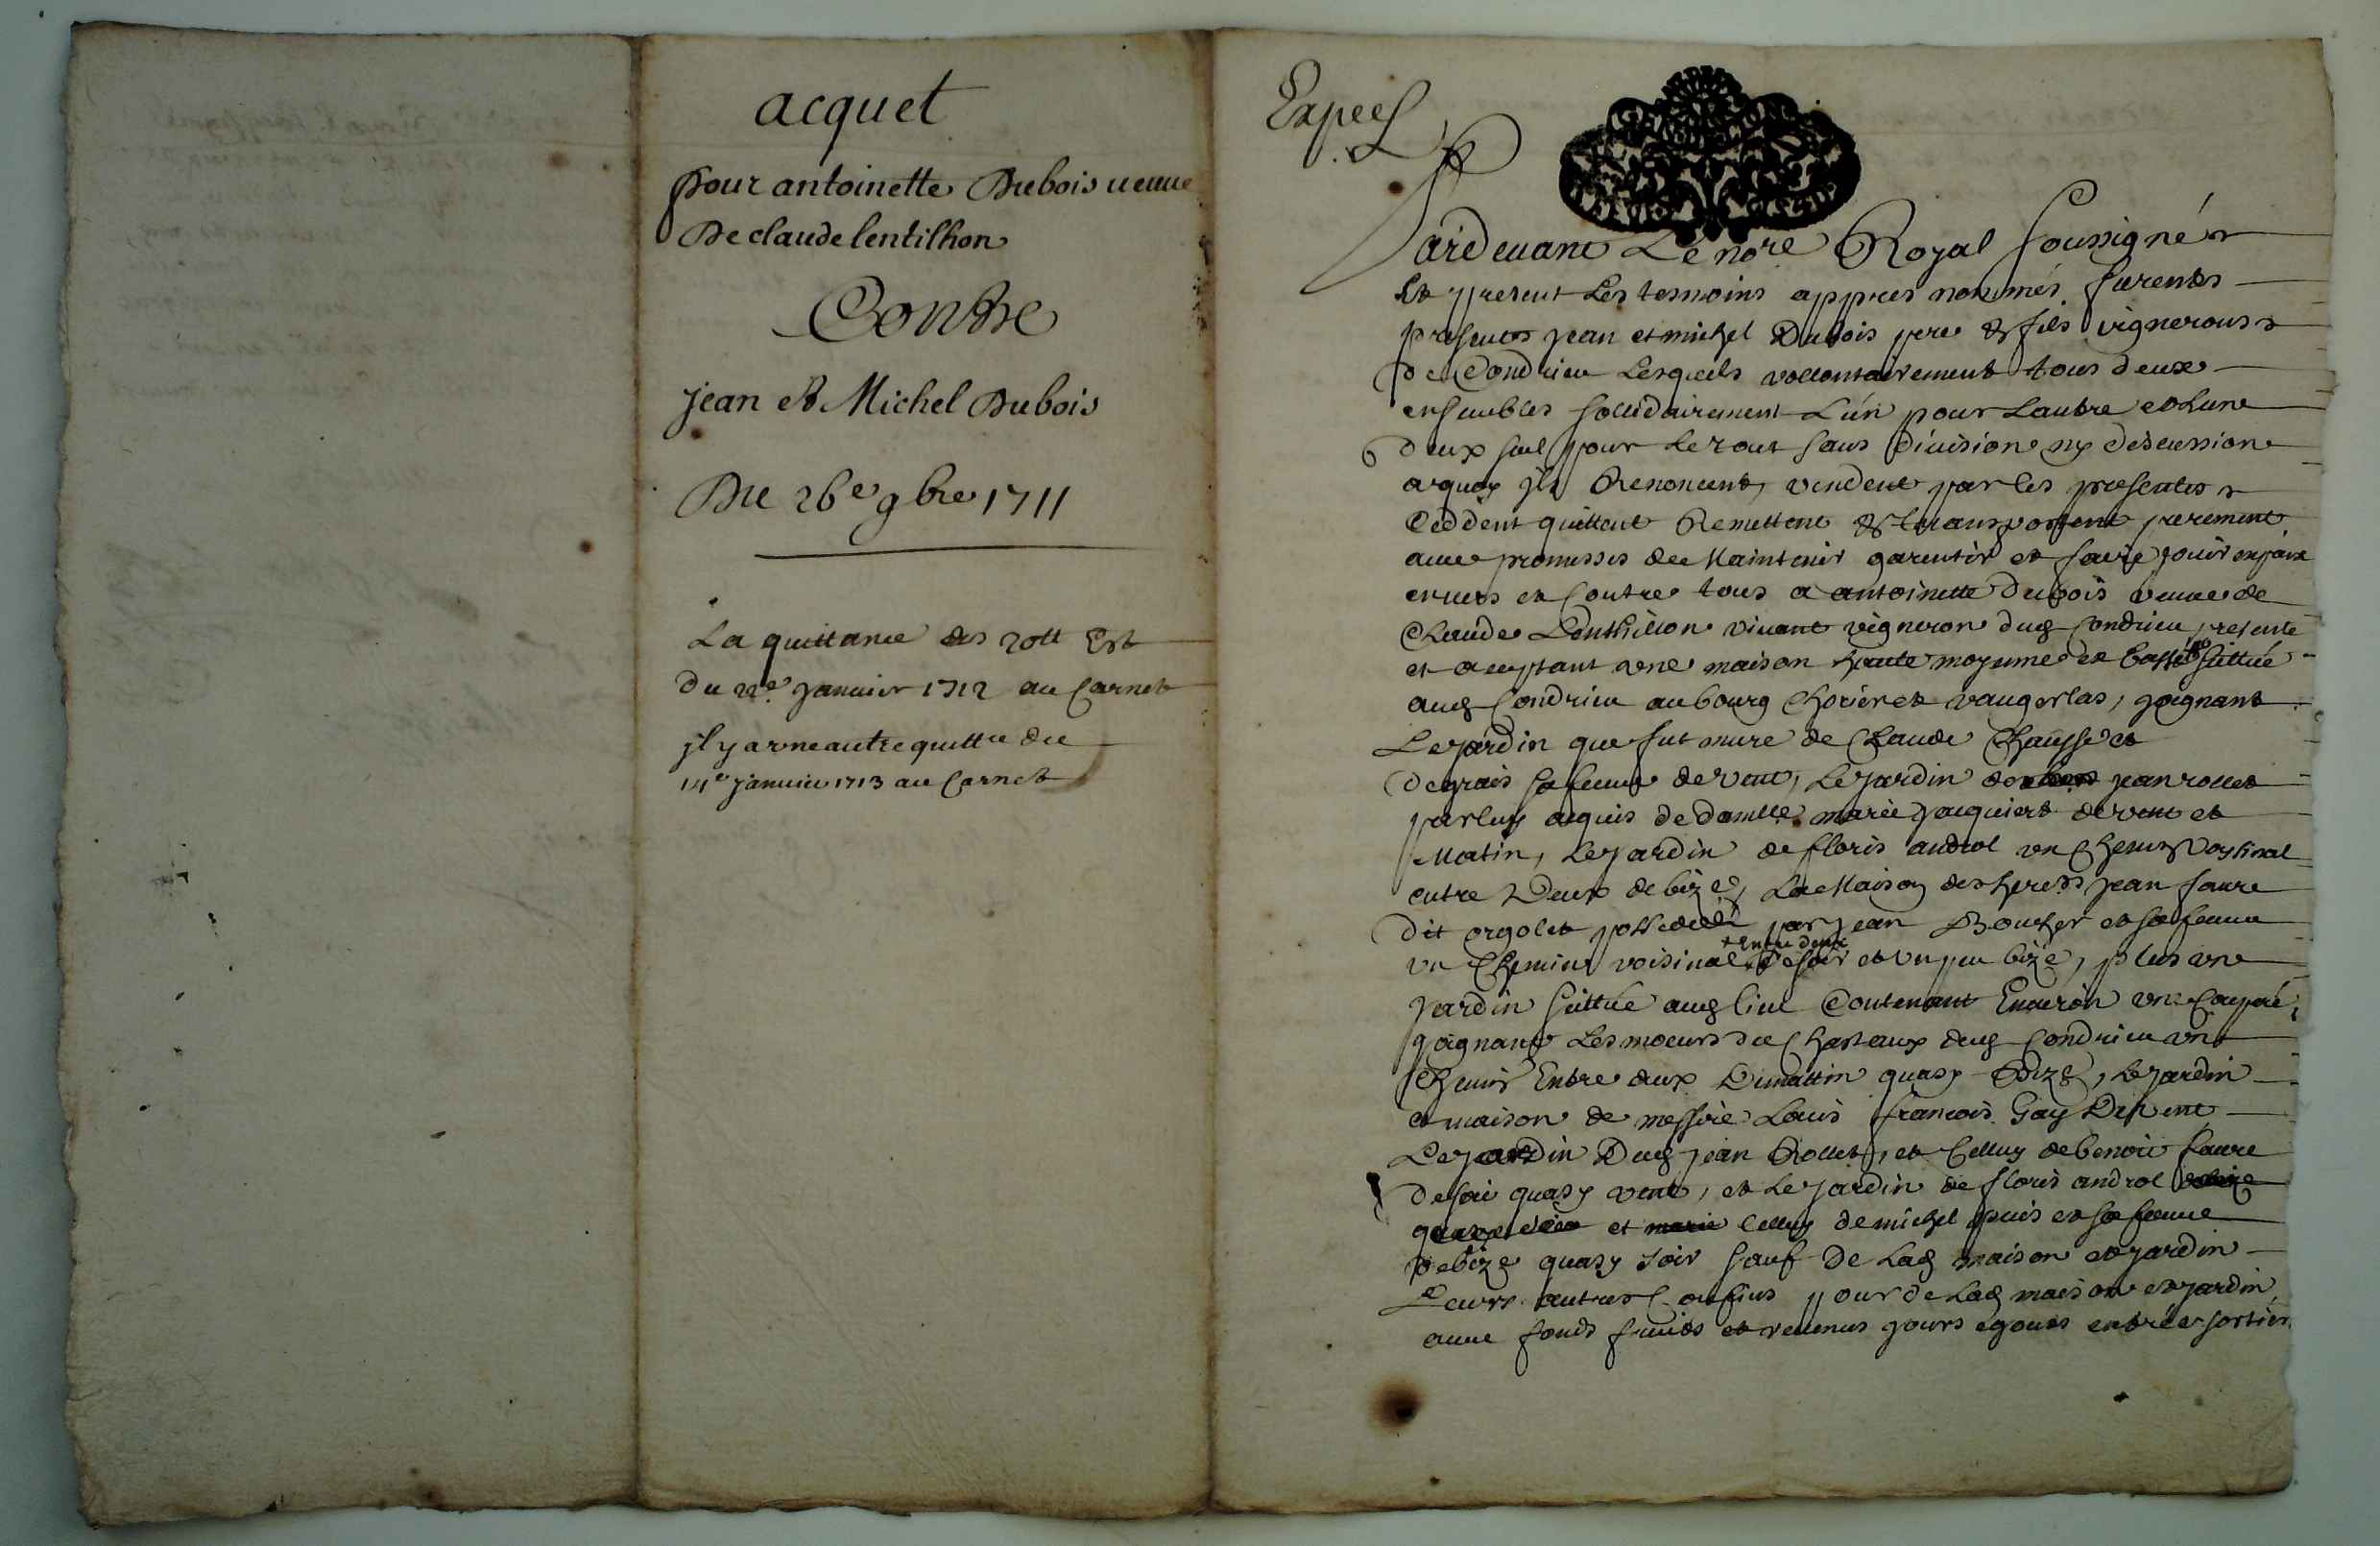 acquet
pour antoinette Dubois ueuue
De claude lentilhon
Contre
jean et Michel Dubois
Du 26e 9bre 1711
La quittance des 20tt Est
du 22e januier 1712 au Carnet
jl y a vne autre quittce du
14e januier 1713 au Carnet
Expee
Pardeuant Le nore Royal soussigné
Et present Les tesmoins appres nommés furents
presents jean et michel Dubois pere et fils vignerons
de Condrieu Lesquels vollontairement tous deux
ensembles sollidairement L'un pour Lautre et Lune
deux seul pour Le tout sans diuision ny discussion
a quoy jls Renoncent, vendent par les presentes
Ceddent quittent Remettent et transportent purement
auec promesses de Maintenir garentir et faire jouir en paix
enuers et Contre tous a antoinette dubois veuue de
Claude Lenthilion viuant vigneron dud Condrieu presente
et acceptant vne maison haute moyenne et basse scittuée
aud Condrieu au bourg Chorier et vaugerlas, joignant
Le jardin que fut mure de Claude Chausse et
degrais sa femme de vent, Le jardin de jean rollet
par luy acquis de damlle marie jacquiert de vent et
Matin, Le jardin de floris androl vn Chemin voysinal
entre Deux de bize, La Maison des hers jean faure
dit orgolet possedée par jean Boucher et sa femme
vn Chemin voisinal +Entre deux de soir et vn peu bize, plus vne
jardin scittué aud lieu Contenant Enuiron vne Coupée,
joignant Les moeurs du Chasteaux dud Condrieu vn
Chemin Entre deux Dimattin quasy Bize, Le jardin
et maison de messire Louis francois Gay De vent
Le jardin Dud jean Rollet, et Celluy de benoit faure
de soir quasy vent, et Le jardin de floris androl
et celluy de michel puis et sa femme
de bize quasy soir sauf de Lad maison et jardin
Leurs autres Confins pour de Lad maison et jardin
auec fonds fruits et reuenus jours egouts entrée sorties